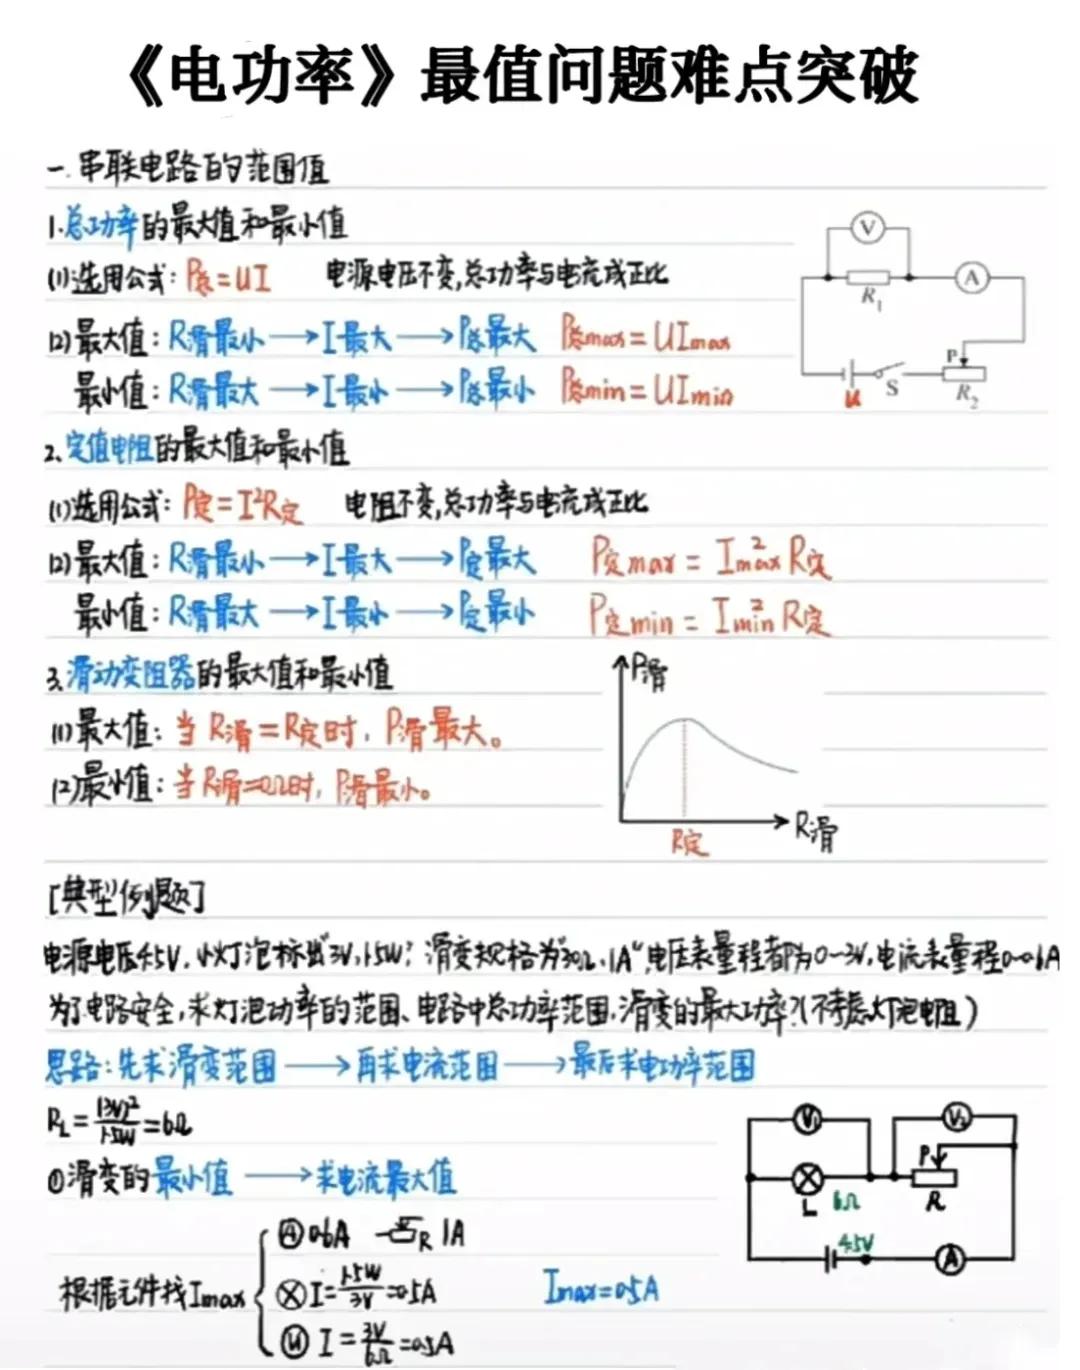 《电功率》最值问题难点突破
一.串联电路的范围值
1.总功率的最大值和最小值
(1)选用公式:P总=UI 电源电压不变,总功率与电流成正比
(2)最大值:R滑最小→I最大→P总最大 P总max=UImax
最小值:R滑最大→I最小→P总最小 P总min=UImin
V
A
R1
P
S
R2
U
2、定值电阻的最大值和最小值
(1)选用公式:P定=I²R定 电阻不变,总功率与电流成正比
(2)最大值:R滑最小→I最大→P定最大 P定max=I²max R定
最小值:R滑最大→I最小→P定最小 P定min=I²min R定
3、滑动变阻器的最大值和最小值
(1)最大值:当R滑=R定时,P滑最大。
(2)最小值:当R滑=0Ω时,P滑最小。
P滑
R滑
R定
[典型例题]
电源电压4.5V.小灯泡标出"3V,1.5W";滑变规格为"30Ω.1A",电压表量程都为0-3V,电流表量程0-0.6A
为了电路安全,求灯泡功率的范围、电路中总功率范围,滑变的最大功率?(不考虑灯泡电阻)
思路:先求滑变范围→再求电流范围→最后求电功率范围
RL=(3V)²/1.5W=6Ω
①滑变的最小值→求电流最大值
根据元件找Imax
A 0.6A R 1A
⊗ I=1.5W/3V=0.5A Imax=0.5A
U I=3V/6Ω=0.5A
V1
V2
P
L 6Ω
R
4.5V
A